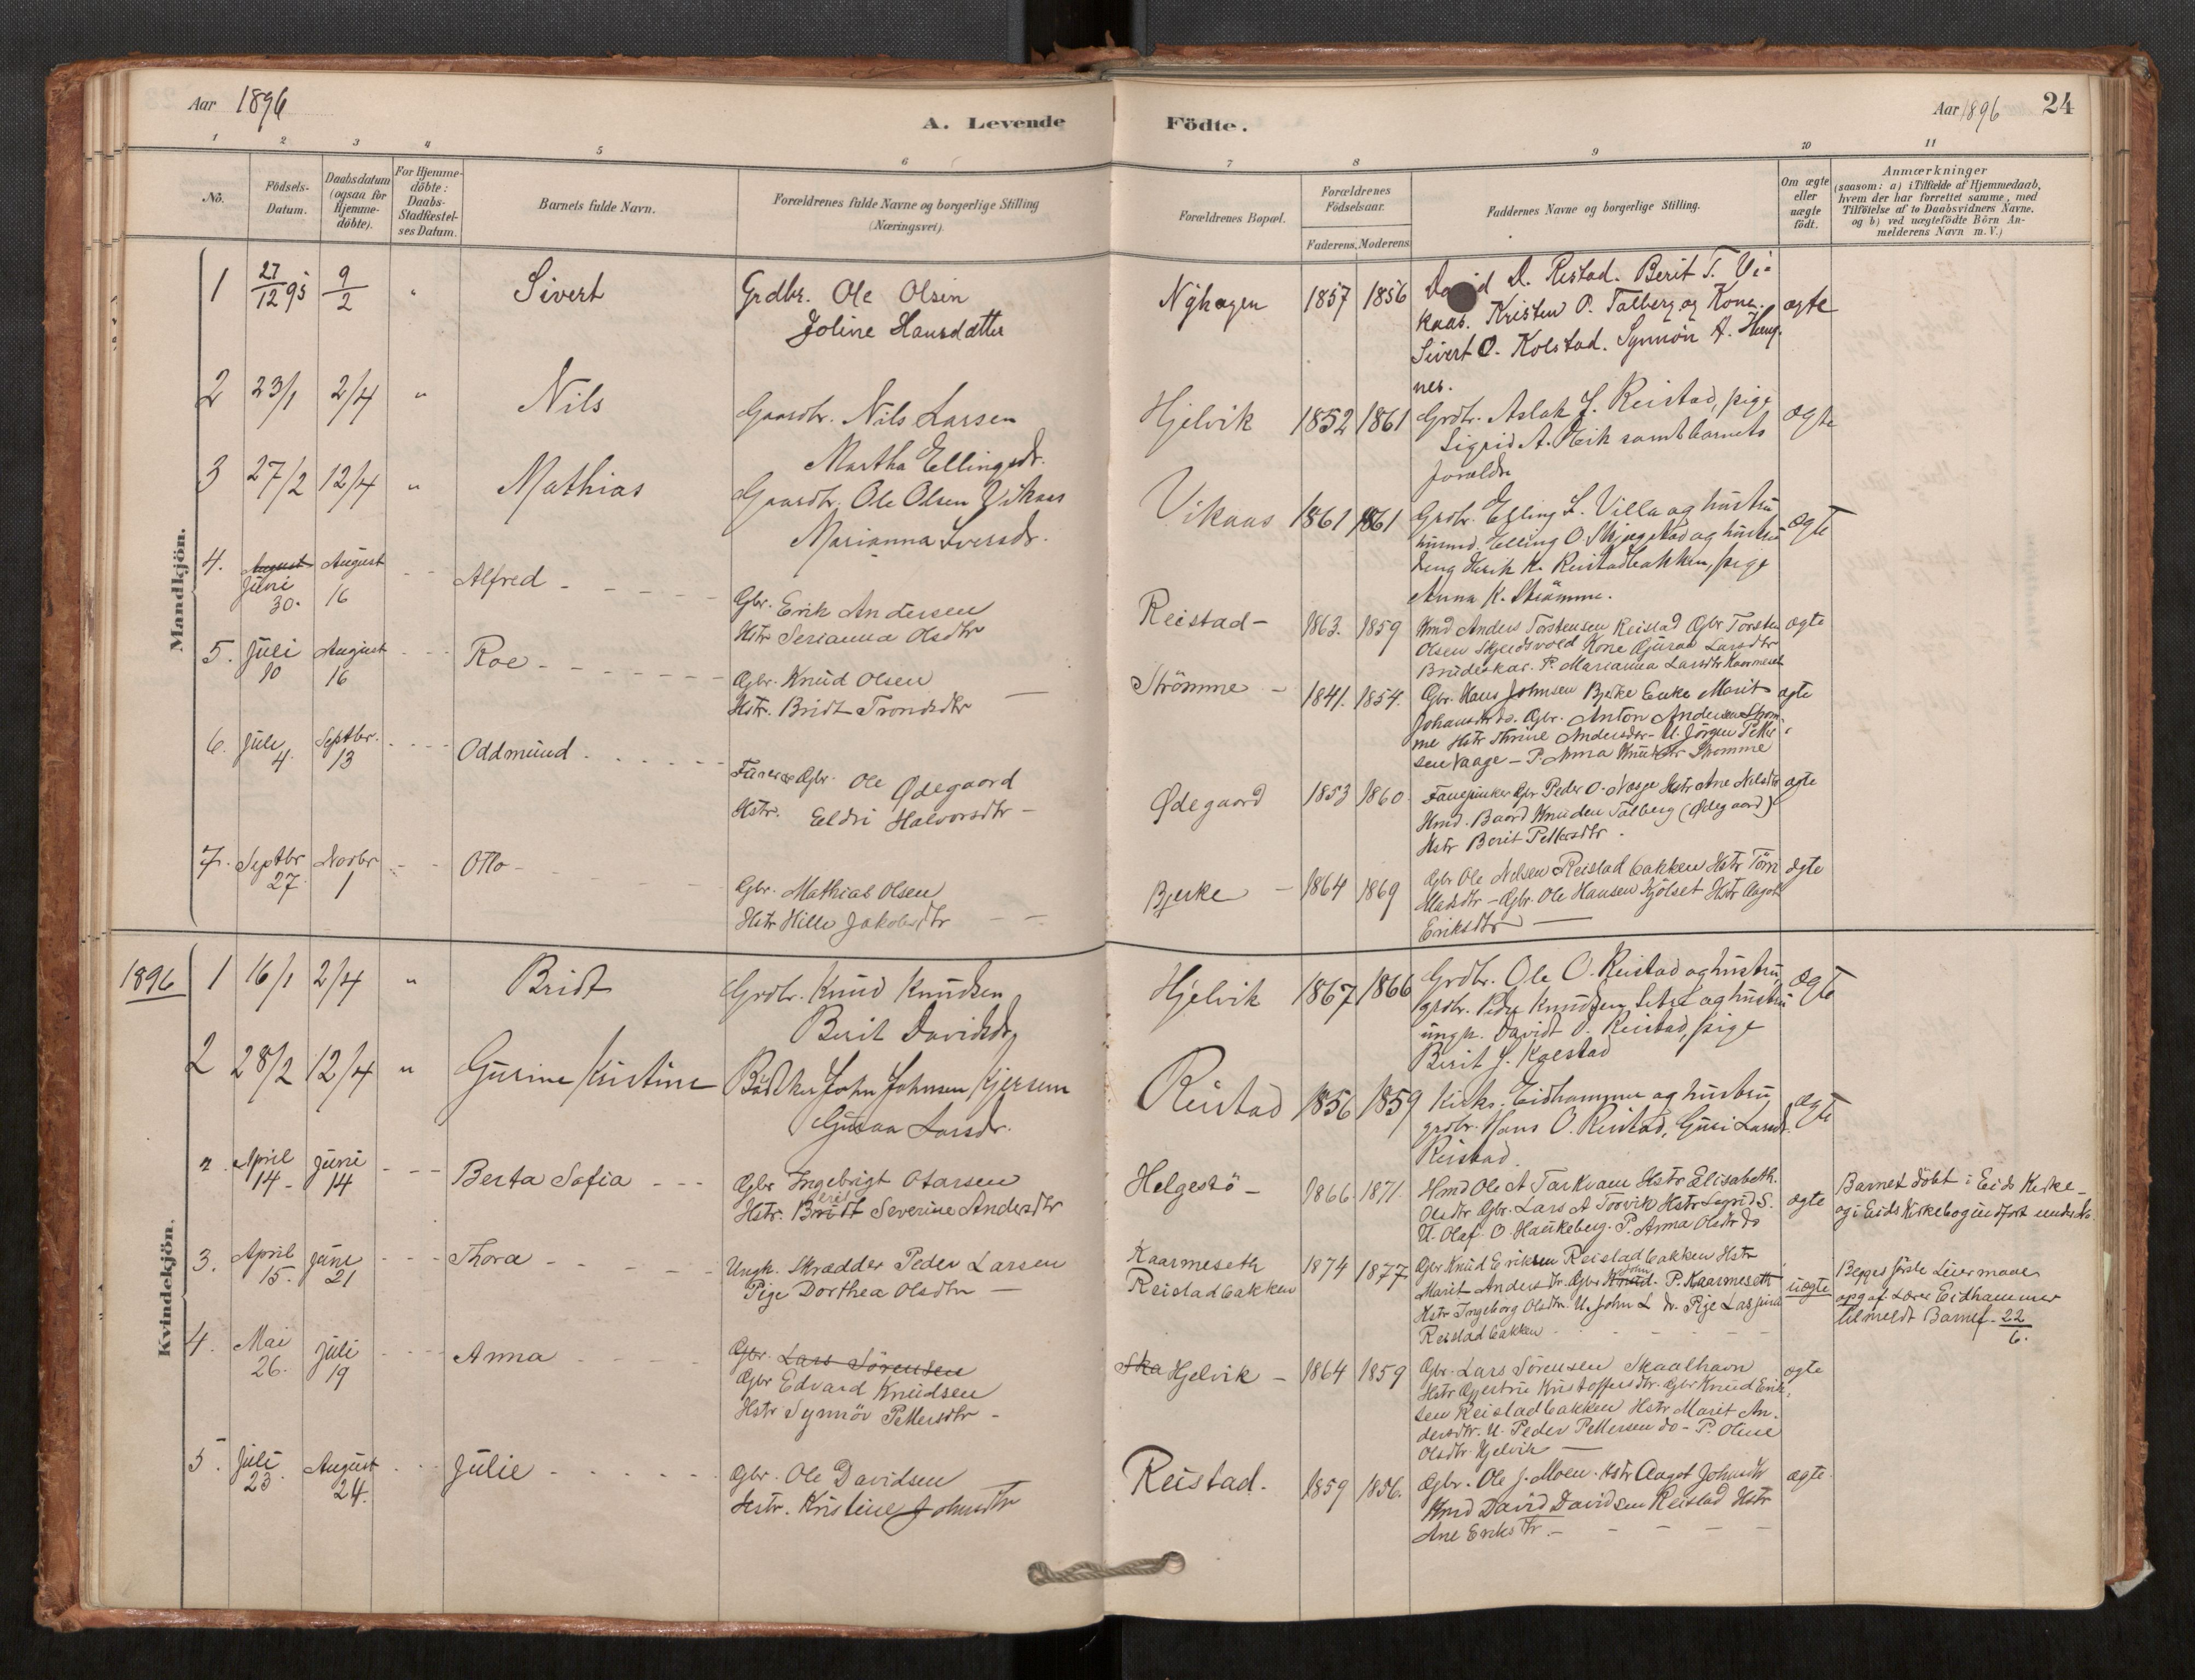 Aar 1896
A. Levende Födte.
Aar 1896 24
1 2 3 4 5 6 7 8 9 10 11
No.
Födsels-Datum.
Daabsdatum (ogsaa for Hjemme-döbte).
For Hjemme-döbte: Daabs-Stadfæstel-ses Datum.
Barnets fulde Navn.
Forældrenes fulde Navne og borgerlige Stilling (Næringsvei).
Forældrenes Bopæl.
Forældrenes Födselsaar.
Faderens. Moderens.
Faddernes Navne og borgerlige Stilling.
Om ægte eller uægte födt.
Anmærkninger
(saasom: a) i Tilfælde af Hjemmedaab,
hvem der har forrettet samme, med
Tilföielse af to Daabsvidners Navne.
og b) ved uægtefödte Börn An-
melderens Navn m. V.)
Mandkjön.
1 27/12 95 9/2 " Sivert Grdbr. Ole Olsen Nyhagen 1857 1856 David D. Reistad. Berit T. Vi- ægte
Joline Hansdatter kaas. Kristen O. Talberg og Kone.
Sivert O. Kolstad. Synnöv A. Hung-
nes.
2 23/1 2/4 " Nils Gaardbr. Nils Larsen Hjelvik 1852 1861 Grdbr. Aslak J. Reistad, pige ægte
Martha Ellingsdr. Sigrid A. Eik samt barnets
forældre
3 27/2 12/4 " Mathias Gaardbr. Ole Olsen Vikaas Vikaas 1861 1861 Grdbr. Elling L. Villa og hustru ægte
Marianna Iversdr. husmd. Elling O. Skjegstad og hustru
dreng Henrik K. Reistadbakken, pige
Anna K. Strömme.
4. August August Alfred Gbr. Erik Andersen Reistad 1863. 1859 Hmd Anders Torstensen Reistad Gbr Torsten ægte
Juni 30. 16 Hstr Serianna Olsdtr Olsen Skjedsvold Kone Guraa Larsdtr
Brudeskar. P. Marianna Larsdtr Kaarmeset
5. Juli 10 August 16 Roe Gbr. Knud Olsen Strömme 1841. 1854. Gbr. Hans Johnsen Bjerke Enke Marit ægte
Hstr. Bridt Trondsdtr Johansdtr do. Gbr. Anton Andersen Ström-
me Hstr Thrine Andersdtr - U. Jörgen Petter-
sen Vaage - P. Anna Knutsdtr Strömme
6. Juli 4 Septbr. 13 Oddmund Gbr. Ole Ødegaard Ødegaard 1853 1860. Fanejunker Gbr Peder O. Vaage Hstr Ane Nilsdtr ægte
Hstr. Eldri Halvorsdtr - Hmd. Baard Knudsen Talberg (Ødegaard)
Hstr Berit Pettersdtr.
7. Septbr 27 Novbr 1 Otto Gbr. Mathias Olsen Bjerke 1864 1869 Gbr Ole Nilsen Reistadbakken Hstr Töri ægte
Hstr Hille Jakobsdtr Madsdtr - Gbr. Ole Hansen Kjölset Hstr Aagot
Eriksdtr
Kvindekjön.
1896 1 16/1 2/4 " Bridt Grdbr. Knud Knudsen Hjelvik 1867 1866 Grdbr. Ole O. Reistad og hustru, ægte
Berit Davidsdr. grdbr. Peder Knudsen Sæter og hustru
ungk. David O. Reistad, pige
Berit J. Kolstad
2 28/2 12/4 " Gurine Kristine Bödker John Johnsen Kjersem Reistad 1856 1859 Kirks. Eidhammer og hustru, ægte
Guraa Larsdr. grdbr. Hans O. Reistad, Guri Larsdr.
Reistad.
2. April 14 Juni 14 Berta Sofia Gbr Ingebrigt Otarsen Helgestö 1866 1871. Hmd Ole A Tarkvam Hstr Elisabeth. ægte Barnet döbt i Eids Kirke
Hstr. Bridt Berit Severine Andersdtr Olsdtr Gbr. Lars A Torvik Hstr Sigrid S. og i Eids Kirkebog indfört under No.
U. Olaf. O. Haukeberg. P. Anna Olsdtr do
3. April 15. Juni 21 Thora Ungk. Skrædder Peder Larsen Kaarmeseth 1874 1877. Gbr Knud Eriksen Reistadbakken Hstr uægte Begges förste Leiermaal
Pige Dorthea Olsdtr Reistadbakken Marit Andersdtr. Gbr Knud John P. Kaarmeseth opg af Lærer Eidhammer
Hstr Ingeborg Olsdtr. U. John L. do. Pige Lasjina tilmeldt Barnef. 22/6.
Reistadbakken
4. Mai 26. Juli 19 Anna Gbr. Lars Sörensen Ska Hjelvik 1864 1859 Gbr. Lars Sörensen Skaalhavn ægte
Gbr Edvard Knudsen Hstr Gjertrue Kristoffersdtr. Gbr Knud Erik-
Hstr Synnöv Pettersdtr - sen Reistadbakken Hstr Marit An-
dersdtr. U. Peder Pettersen do - P. Oline
Olsdtr Hjelvik
5. Juli 23 August 24. Julie Gbr. Ole Davidsen Reistad. 1859 1856. Gbr. Ole J. Moen. Hstr Aagot Johnsdtr ægte
Hstr. Kristine Johnsdtr Hmd David Davidsen Reistad Hstr
Ane Eriksdtr.